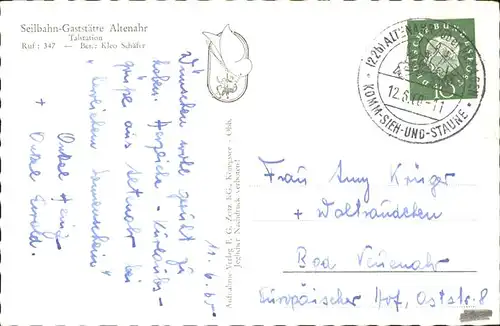 Seilbahn-Gaststätte Altenahr
Talstation
Ruf: 347 — Bes.: Kleo Schäfer
Wünschen wohl geruht zu
haben. Herzliche Kurlaubs-
grüße aus Altenahr bei
"herrlichem Sonnenschein"
+ Onkel Ewald.
Aufnahme Verlag F. G. Zeitz KG., Königssee - Obb.
Jeglicher Nachdruck verboten!
(22b) ALTENAHR
12.6.60-11
KOMM-SIEH-UND-STAUNE
DEUTSCHE BUNDESPOST
10
Frau Amy Krüger
+ Waltraudchen
Bad Neuenahr
Europäischer Hof, Oststr. 8